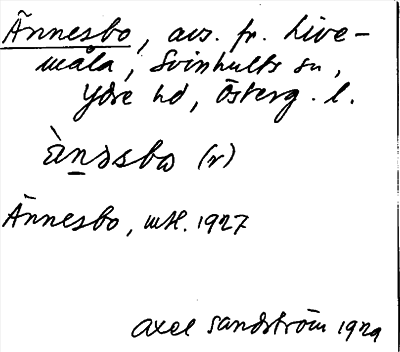 Ännesbo, avs. fr. Live-
måla, Svinhults sn,
Ydre hd, Österg. l.
ànəsbω (r)
Ännesbo, mtl. 1927
Axel Sandström 1929